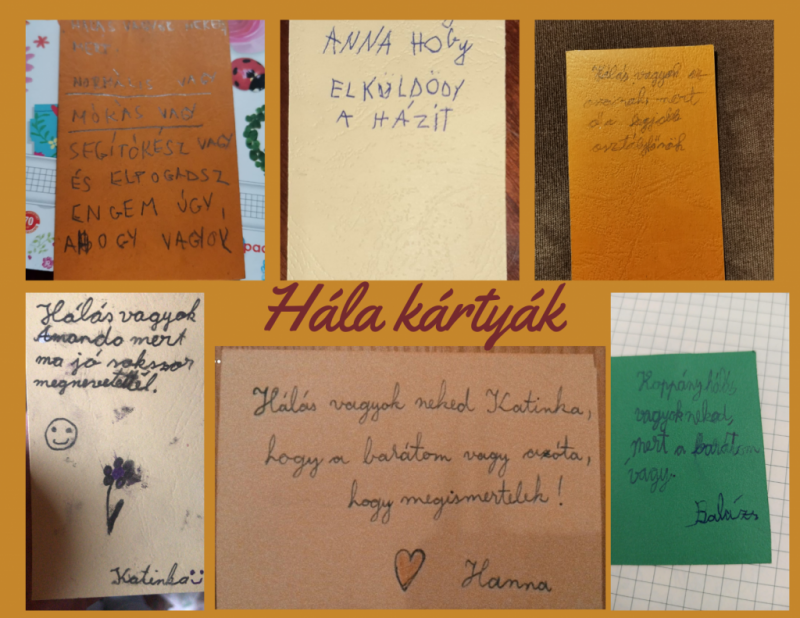 VAGY
MÓKAS VAGY
SEGÍTŐKÉSZ VAGY
ÉS ELFOGADSZ
ENGEM ÚGY,
AHOGY VAGYOK
ANNA HOGY
ELKÜLDÖDY
A HÁZIT
Hálás vagyok az
mert
ő a legjobb
osztályfőnök
Hála kártyák
Hálás vagyok
Amanda mert
ma jó sokszor
megnevetettél.
Katinka
Hálás vagyok neked Katinka,
hogy a barátom vagy azóta,
hogy megismertelek!
Hanna
Koppány hálás
vagyok neked,
mert a barátom
vagy.
Balázs